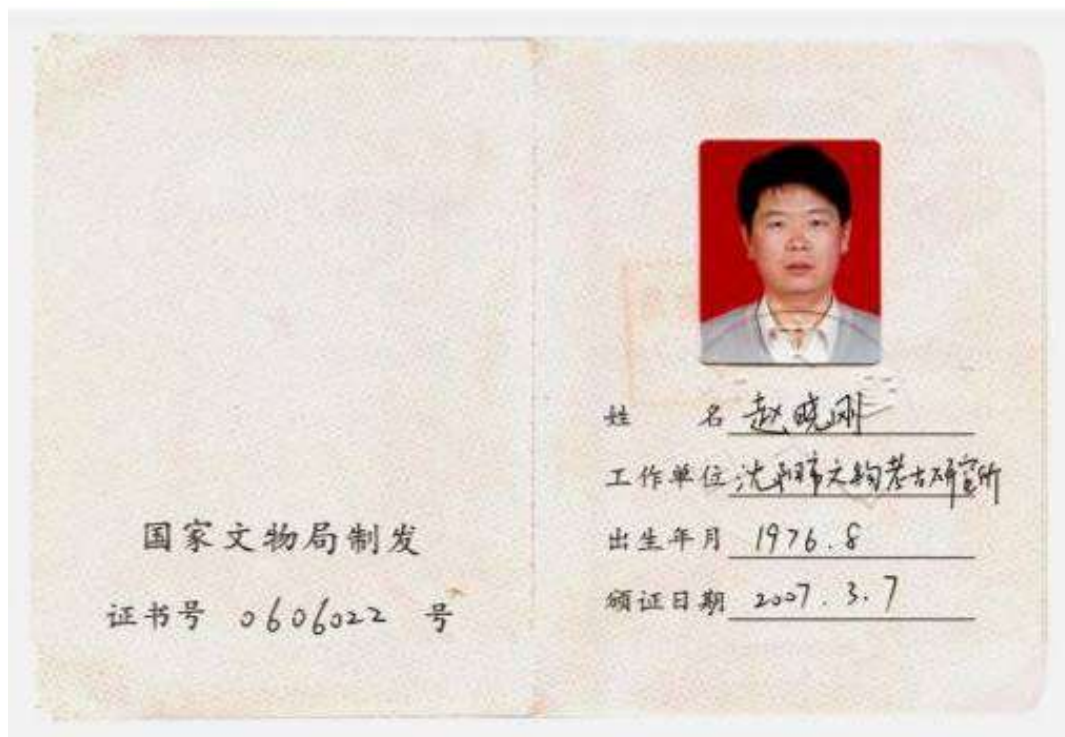 国家文物局制发
证书号 0606022 号
姓 名 赵晓刚
工作单位 沈阳市文物考古研究所
出生年月 1976.8
颁证日期 2007.3.7